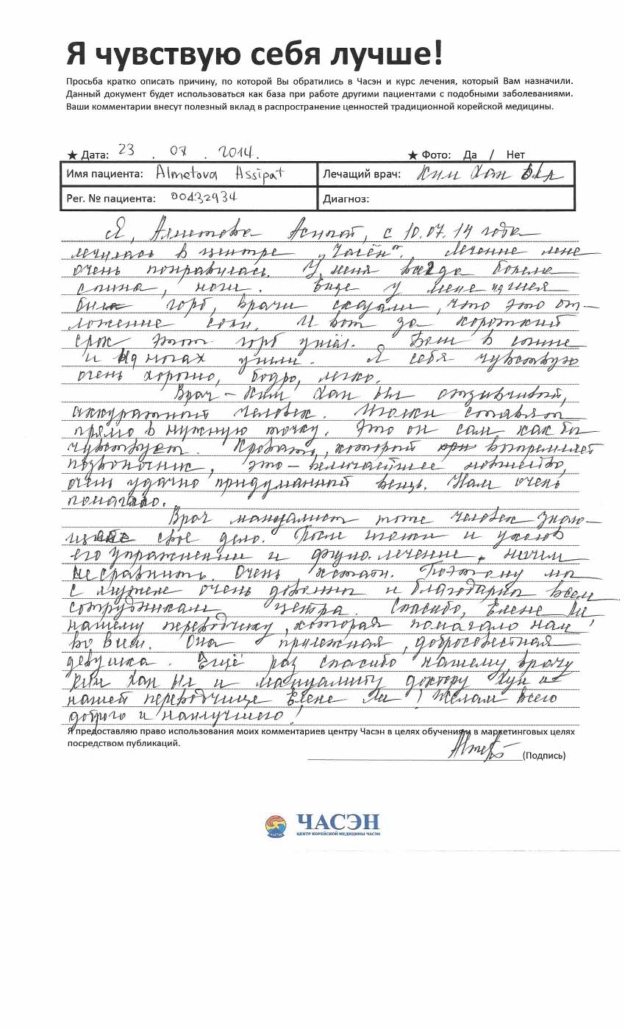 Я чувствую себя лучше!
Просьба кратко описать причину, по которой Вы обратились в Часэн и курс лечения, который Вам назначили.
Данный документ будет использоваться как база при работе другими пациентами с подобными заболеваниями.
Ваши комментарии внесут полезный вклад в распространение ценностей традиционной корейской медицины.
★ Дата: 23 . 07 . 2014. ★ Фото: Да / Нет
Имя пациента: Almetova Assipat Лечащий врач: Ким Хан Ыл
Рег. № пациента: 00432934 Диагноз:
Я, Алметова Асипат, с 10.07.14 года
лечулась в центре „Часён". Лечение мне
очень понравулась. У меня всегда болела
спина, ноги. Еще у меня на шея
был горб, врачи сказали, что это от-
ложение соли. И вот за короткий
срок этот горб ушёл. Боли в спине
и на ногах ушли. Я себя чувствую
очень хорошо, бодро, легко.
Врач – Ким Хан Ыл отзывчивый,
аккуратный человек. Иголки ставлят
прямо в нужную точку. Это он сам как бы
чувствует. Кровать, который выпремляет
позвоночник, это – величайшее
очень удачно придуманный вещь. Нам очень
помагало.
Врач мануалист тоже человек знаю-
щее свое дело. После иголки и уколов
его упражнении и физио. лечение, ничем
не сравнить. Очень кстати. Поэтому мы
с мужем очень довольны и благодарны всем
сотрудникам центра. Спасибо, Елене Ли
нашему переводчику, которая помагало нам
во всем. Она прилежная, добросовестная
девушка. Ещё раз спасибо нашему врачу
Ким Хан Ыл и мануалисту доктору Хун и
нашей переводчице Елене Ли! Желам всего
доброго и наилучшего!
Я предоставляю право использования моих комментариев центру Часэн в целях обучения и в маркетинговых целях
посредством публикаций.
(Подпись)
ЧАСЭН
ЦЕНТР КОРЕЙСКОЙ МЕДИЦИНЫ ЧАСЭН